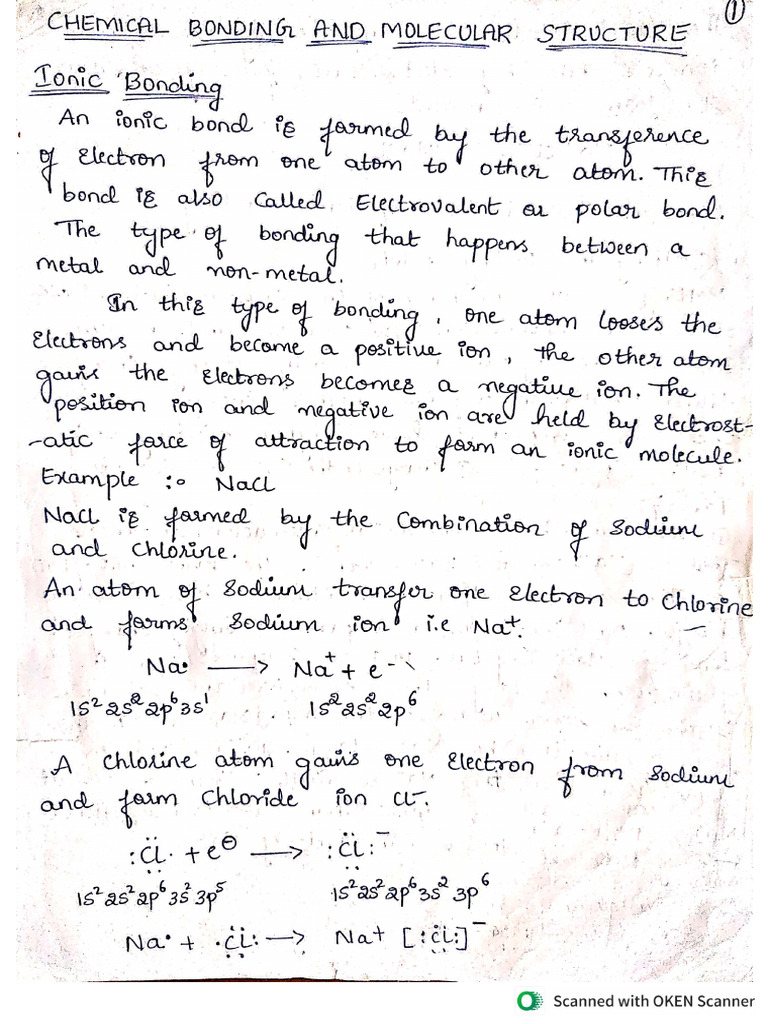 1
CHEMICAL BONDING AND MOLECULAR STRUCTURE
Ionic Bonding
An ionic bond is formed by the transference
of electron from one atom to other atom. This
bond is also called Electrovalent or polar bond.
The type of bonding that happens between a
metal and non-metal.
In this type of bonding, one atom looses the
electrons and become a positive ion, the other atom
gains the electrons becomes a negative ion. The
position ion and negative ion are held by electrost-
-atic force of attraction to form an ionic molecule.
Example :- NaCl
NaCl is formed by the combination of sodium
and chlorine.
An atom of sodium transfer one electron to chlorine
and forms sodium ion i.e Na⁺.
Na• ⟶ Na⁺ + e⁻
1s² 2s² 2p⁶ 3s¹ 1s² 2s² 2p⁶
A chlorine atom gains one electron from sodium
and form chloride ion Cl⁻.
:C̈l· + e⊖ ⟶ :C̈l:⁻
1s² 2s² 2p⁶ 3s² 3p⁵ 1s² 2s² 2p⁶ 3s² 3p⁶
Na• + ·C̈l: ⟶ Na⁺ [:C̈l:]⁻
Scanned with OKEN Scanner